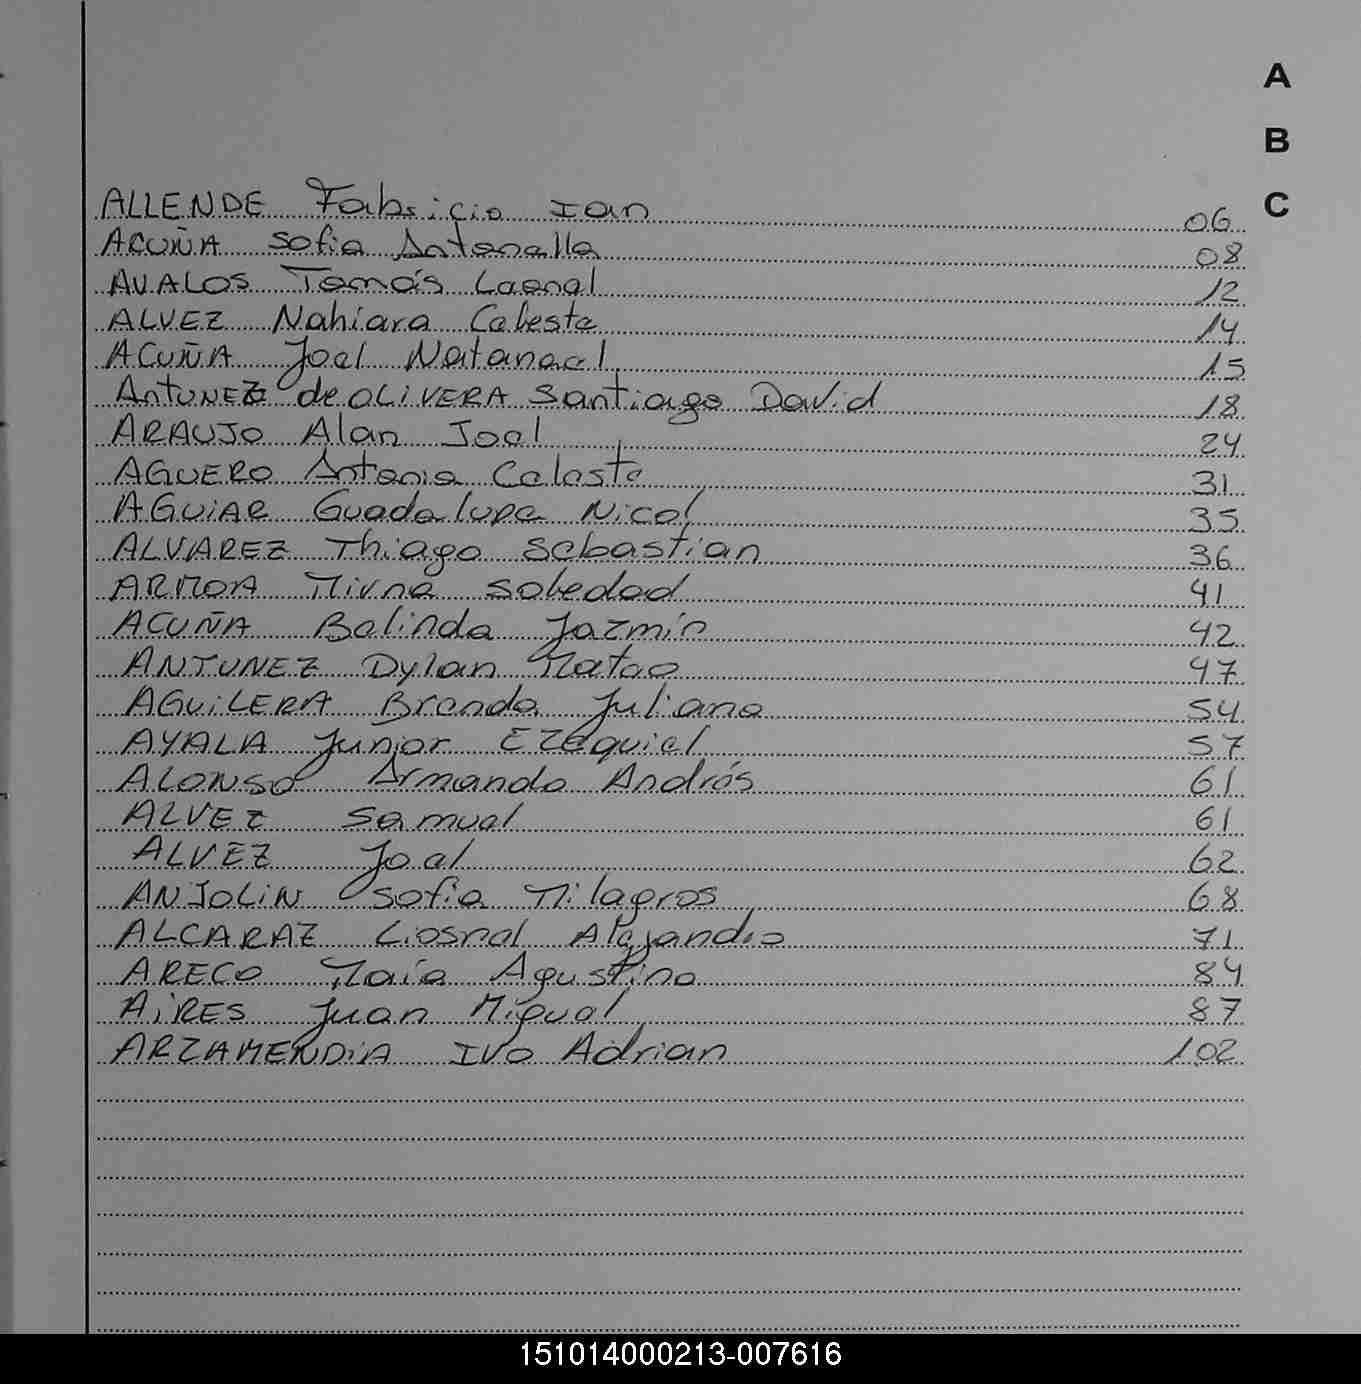 A
B
C
ALLENDE Fabricio Ian 06
ACUÑA Sofia Antonella 08
AVALOS Tomás Leonel 12
ALVEZ Nahiara Celeste 14
ACUÑA Joel Natanael 15
ANTUNEZ de OLIVERA Santiago David 18
ARAUJO Alan Joel 24
AGUERO Antonia Celeste 31
AGUIAR Guadalupe Nicol 35
ALVAREZ Thiago Sebastian 36
ARMOA Mirna Soledad 41
ACUÑA Belinda Jazmín 42
ANTUNEZ Dylan Mateo 47
AGUILERA Brenda Juliana 54
AYALA Junior Ezequiel 57
ALONSO Armando Andrés 61
ALVEZ Samuel 61
ALVEZ Joel 62
ANJOLIN Sofia Milagros 68
ALCARAZ Alejandro 71
ARECO Maia Agustina 84
AIRES Juan Miguel 87
ARZAMENDIA Ivo Adrian 102
151014000213-007616